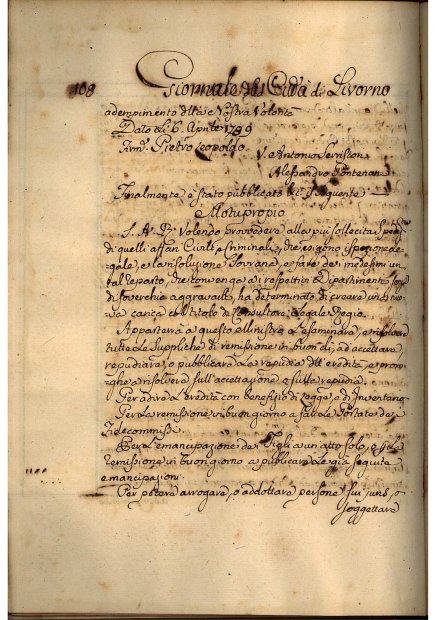 108 Giornale della Città di Livorno
adempimento della Nostra Volontà
Dato li 6. Aprile 1789
Firm. Pietro Leopoldo
V. Antonio Serristori
Alessandro Pontenani
Finalmente è stato pubblicato il seguente
Motuproprio
S. A. R. Volendo provvedere alla più sollecita
di quelli affari Civili, e Criminali, che esigono ispezione
legale, e la risoluzione Sovrana, e fare dei medesimi un
tal reparto, che convenga a i rispettivi Dipartimenti
di soverchio aggravarli, ha determinato di creare una
carica col titolo di Consultore Legale Regio.
Apparterrà a questo Ministro l'esaminare, e risolvere
tutte le Suppliche di remissione in buon dì, ad accettare,
repudiare, o pubblicare la repudia dell'eredità, e
e risolverà sull'accettazione, e sulla repudia.
Per adire l'eredità con benefizio di Legge, e di Inventario
Per la remissione in buon giorno a fare le Portate dei
Fidecommissi.
Per l'emancipazione de Figli a un atto solo, e
remissione in buon giorno a pubblicare le già seguite
emancipazioni.
Per potere arrogare, o addottare persone sui juris, o
soggettare